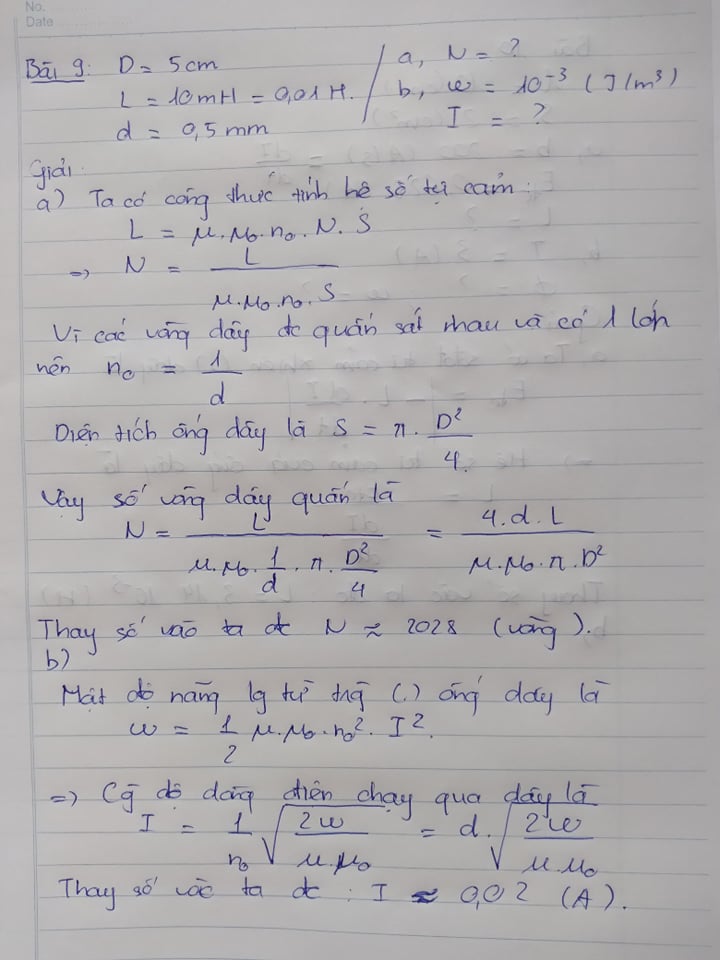 No.
Date
Bài 9: D = 5cm / a, N = ?
L = 10mH = 0,01H. / b, w = 10⁻³ (J/m³)
d = 0,5mm I = ?
Giải
a) Ta có công thức tính hệ số tự cảm:
L = μ.μ₀.n₀.N.S
=> N = L / (μ.μ₀.n₀.S)
Vì các vòng dây đc quấn sát nhau và có 1 lớp
nên n₀ = 1/d
Diện tích ống dây là S = π. D²/4.
Vậy số vòng dây quấn là
N = L / (μ.μ₀.1/d.π.D²/4) = 4.d.L / (μ.μ₀.π.D²)
Thay số vào ta đc N ≈ 2028 (vòng).
b)
Mật độ năng lg từ trg (.) ống dây là
w = 1/2 μ.μ₀.n₀².I².
=> Cg độ dòng điện chạy qua dây là
I = 1/n₀ √(2w / (μ.μ₀)) = d.√(2w / (μ.μ₀))
Thay số vào ta đc : I ≈ 0,02 (A).